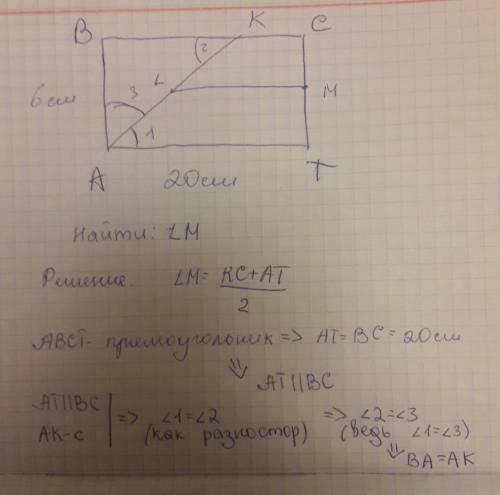 B K C
2
6см 3 L M
1
A 20см T
Найти: LM
Решение. LM = KC+AT
2
ABCT - прямоугольник => AT = BC = 20см
⇓ AT||BC
AT||BC => ∠1=∠2 => ∠2=∠3
AK-с (как разностор) (ведь ∠1=∠3)
⇓ BA=AK